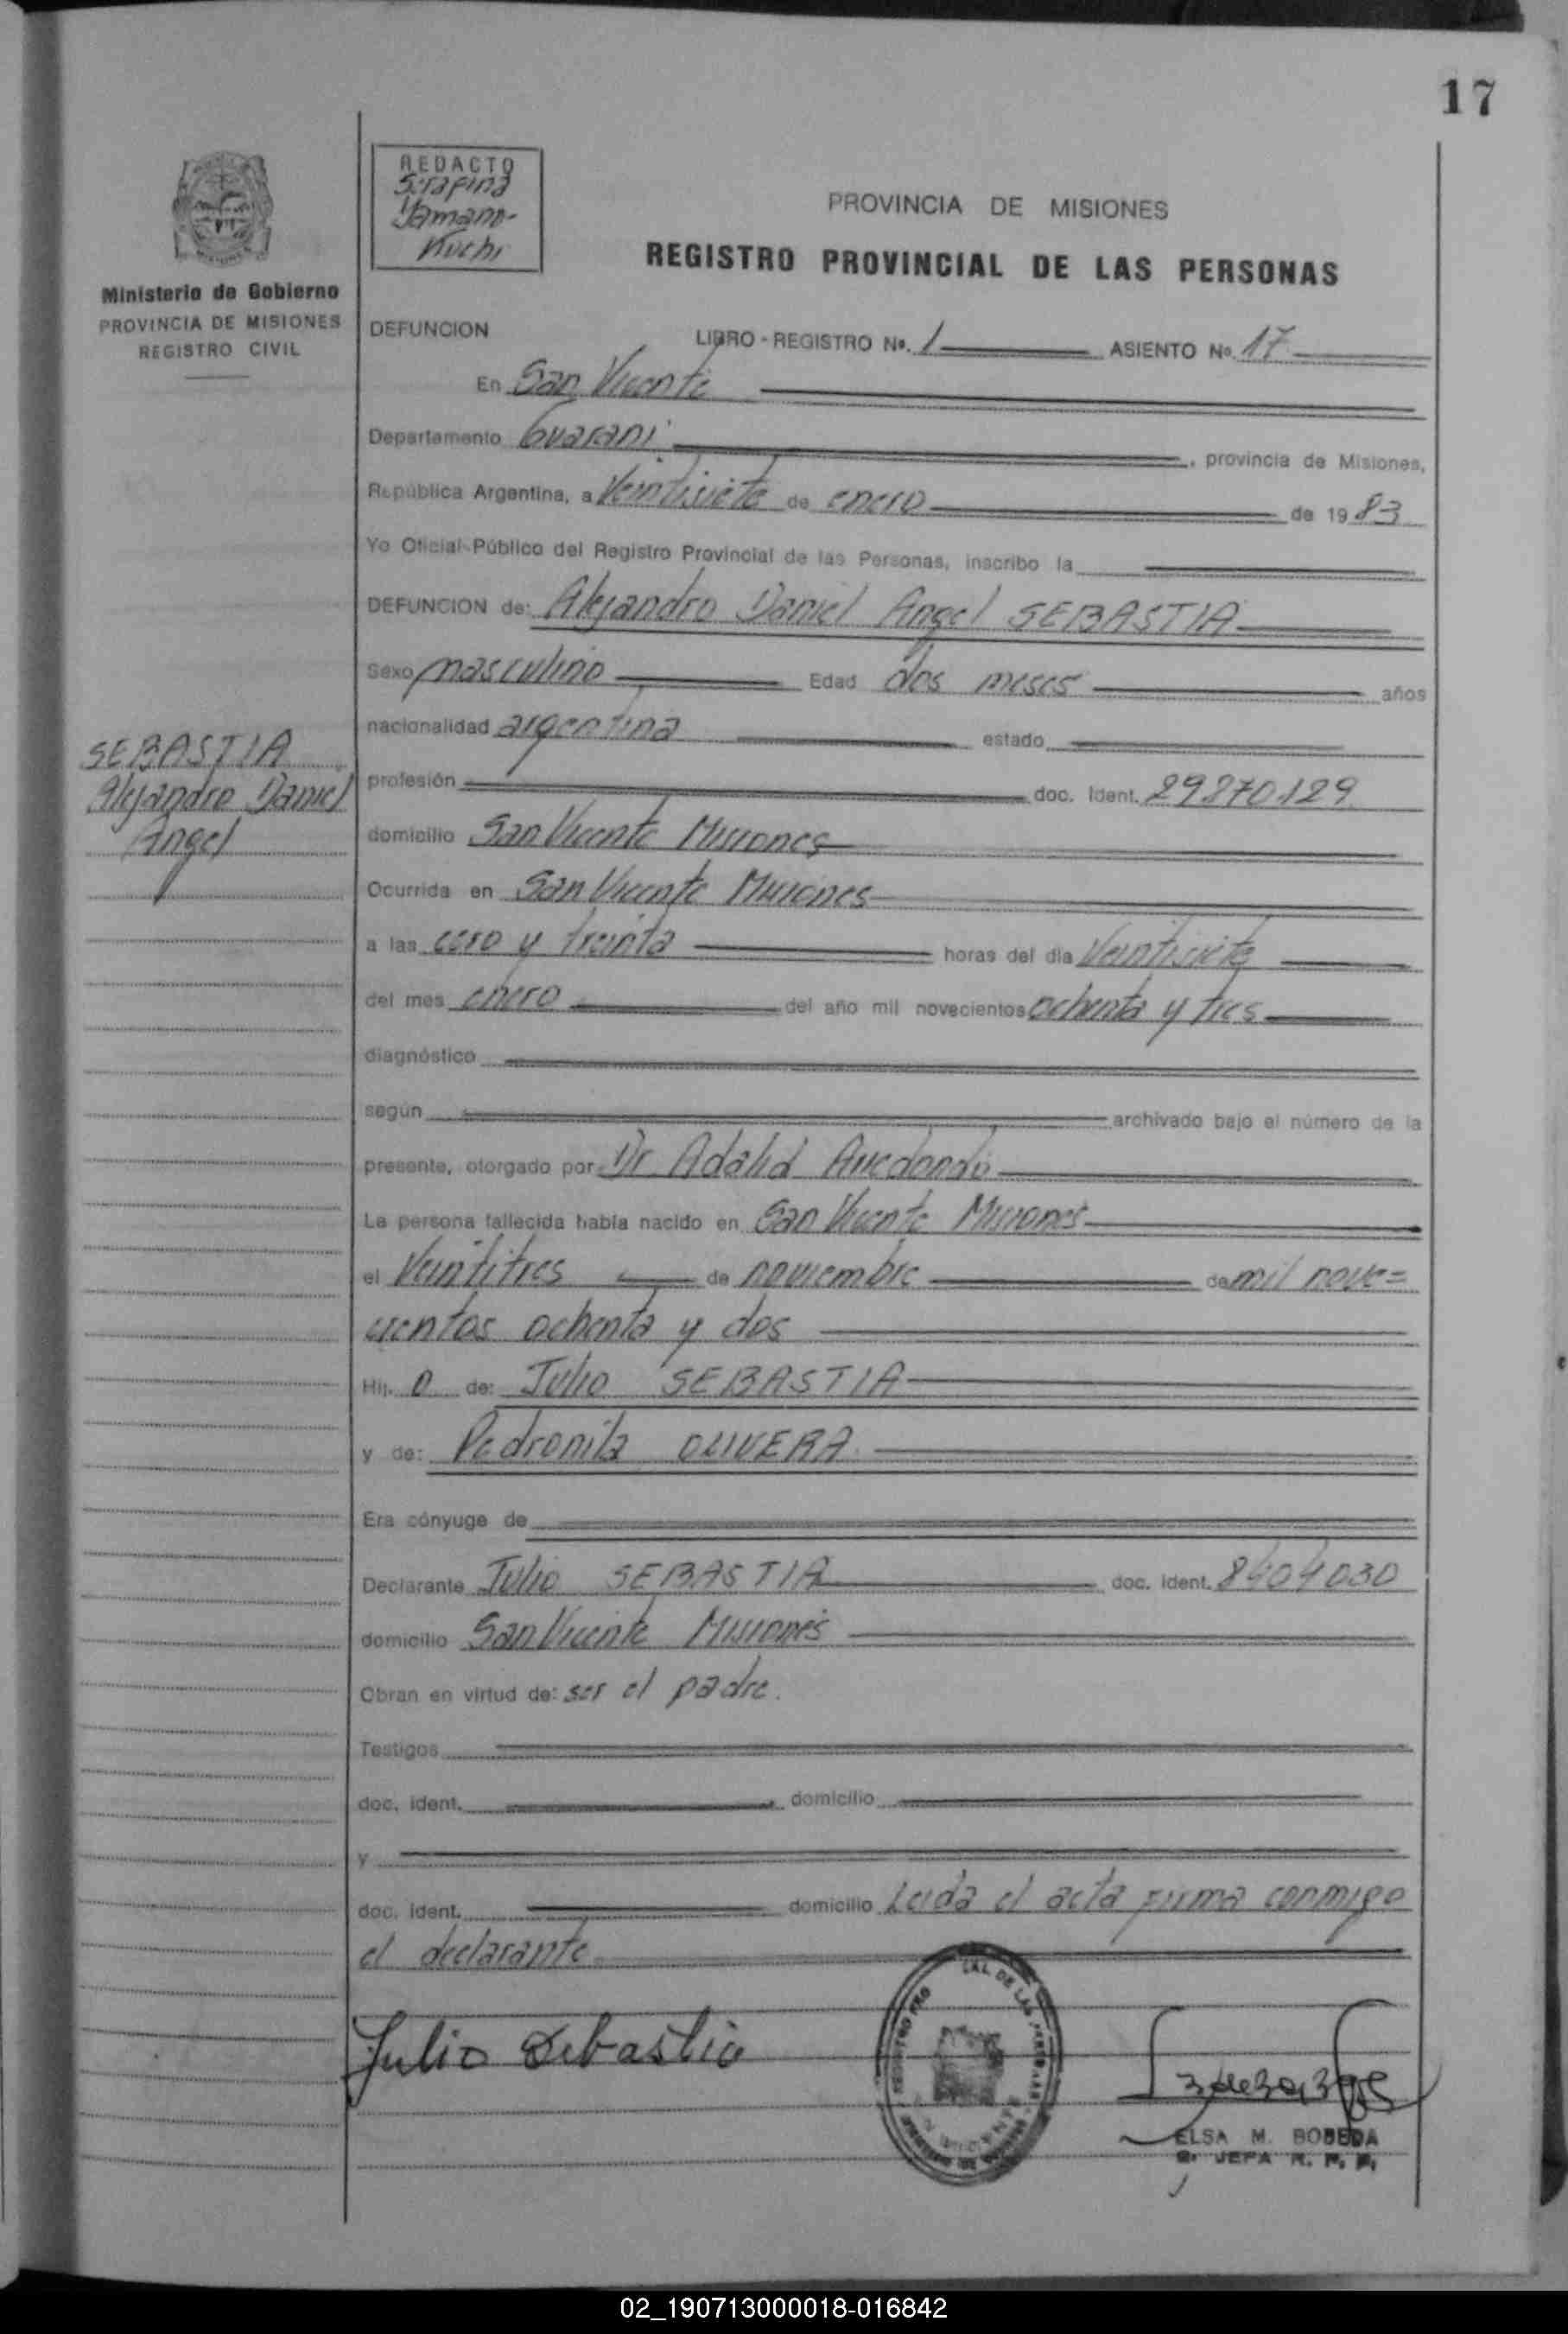 17
REDACTO
Serafina
Yamano-
Kuchi
Ministerio de Gobierno
PROVINCIA DE MISIONES
REGISTRO CIVIL
PROVINCIA DE MISIONES
REGISTRO PROVINCIAL DE LAS PERSONAS
DEFUNCION LIBRO - REGISTRO Nº. 1 ASIENTO Nº. 17
En San Vicente
Departamento Guaraní, provincia de Misiones,
República Argentina, a Veintisiete de enero de 1983
Yo Oficial Público del Registro Provincial de las Personas, inscribo la
DEFUNCION de: Alejandro Daniel Angel SEBASTIA
Sexo masculino Edad dos meses años
nacionalidad argentina estado
SEBASTIA
Alejandro Daniel
Angel
profesión doc. Ident. 29270.129
domicilio San Vicente Misiones
Ocurrida en San Vicente Misiones
a las cero y treinta horas del día Veintisiete
del mes enero del año mil novecientos ochenta y tres
diagnóstico
según archivado bajo el número de la
presente, otorgado por Dr Adalid
La persona fallecida había nacido en San Vicente Misiones
el Veintitres de noviembre de mil nove=
cientos ochenta y dos
Hij. o de: Julio SEBASTIA
y de: Pedronila OLIVERA
Era cónyuge de
Declarante Julio SEBASTIA doc. Ident. 8404030
domicilio San Vicente Misiones
Obran en virtud de: ser el padre.
Testigos
doc. ident. domicilio
y
doc. ident. domicilio Leida el acta firma conmigo
el declarante
Julio Sebastia
ELSA M. BOBEDA
JEFA R. P. P.
02_190713000018-016842